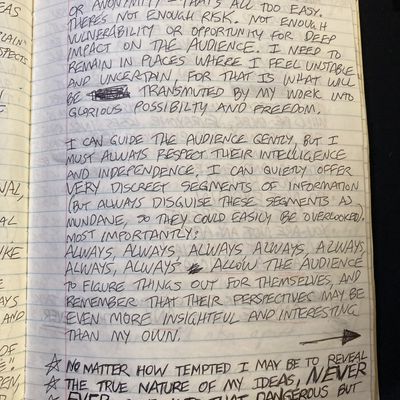 OR ANONYMITY — THAT'S ALL TOO EASY.
THERE'S NOT ENOUGH RISK. NOT ENOUGH
VULNERABILITY OR OPPORTUNITY FOR DEEP
IMPACT ON THE AUDIENCE. I NEED TO
REMAIN IN PLACES WHERE I FEEL UNSTABLE
AND UNCERTAIN, FOR THAT IS WHAT WILL
BE TRANSMUTED BY MY WORK INTO
GLORIOUS POSSIBILTY AND FREEDOM.
I CAN GUIDE THE AUDIENCE GENTLY, BUT I
MUST ALWAYS RESPECT THEIR INTELLIGENCE
AND INDEPENDENCE. I CAN QUIETLY OFFER
VERY DISCREET SEGMENTS OF INFORMATION
(BUT ALWAYS DISGUISE THESE SEGMENTS AS
MUNDANE, SO THEY COULD EASILY BE OVERLOOKED).
MOST IMPORTANTLY:
ALWAYS, ALWAYS, ALWAYS ALWAYS, ALWAYS,
ALWAYS, ALWAYS ALLOW THE AUDIENCE
TO FIGURE THINGS OUT FOR THEMSELVES, AND
REMEMBER THAT THEIR PERSPECTIVES MAY BE
EVEN MORE INSIGHTFUL AND INTERESTING
THAN MY OWN.
NO MATTER HOW TEMPTED I MAY BE TO REVEAL
THE TRUE NATURE OF MY IDEAS, NEVER
EVER THAT DANGEROUS BUT